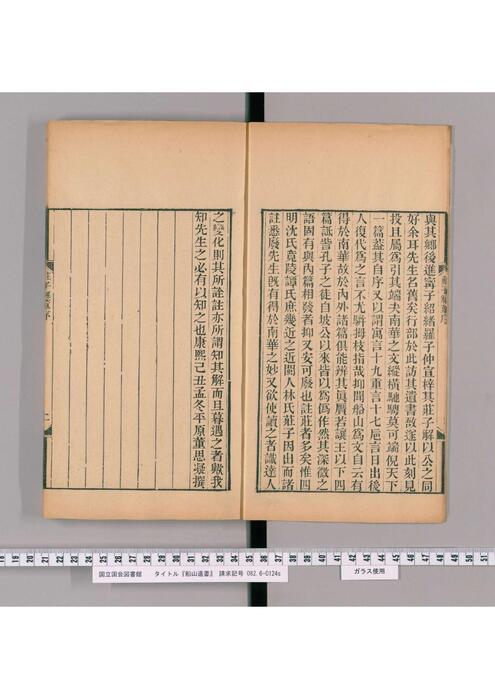 與其鄉後進甯子紹緒羅子仲宣梓其莊子解以公之同
好余耳先生名舊矣行部於此訪其遺書故遂以此刻見
投且屬為引其端夫南華之文縱橫馳騁莫可端倪天下
一篇蓋其自序又以謂寓言十九重言十七巵言日出後
人復代為之言不尤騈拇枝指哉抑聞船山為文自云有
得於南華故於內外諸篇俱能辨其眞贋若讓王以下四
篇詆訾孔子之徒自坡公以來皆以為僞作然其深微之
語固有與內篇相發者抑又安可廢也註莊者多矣惟四
明沈氏竟陵譚氏庶幾近之近閩人林氏莊子因出而諸
註悉廢先生旣有得於南華之妙又欲使讀之者識達人
之變化則其所詮註亦所謂知其解而旦暮遇之者歟我
知先生之必有以知之也康熙己丑孟冬平原董思凝撰
18 19 20 21 22 23 24 25 26 27 28 29 30 31 32 33 34 35 36 37 38 39 40 41 42 43 44 45 46 47 48 49 50 51
国立国会図書館 タイトル『船山遺書』 請求記号 082.6-0124s
ガラス使用